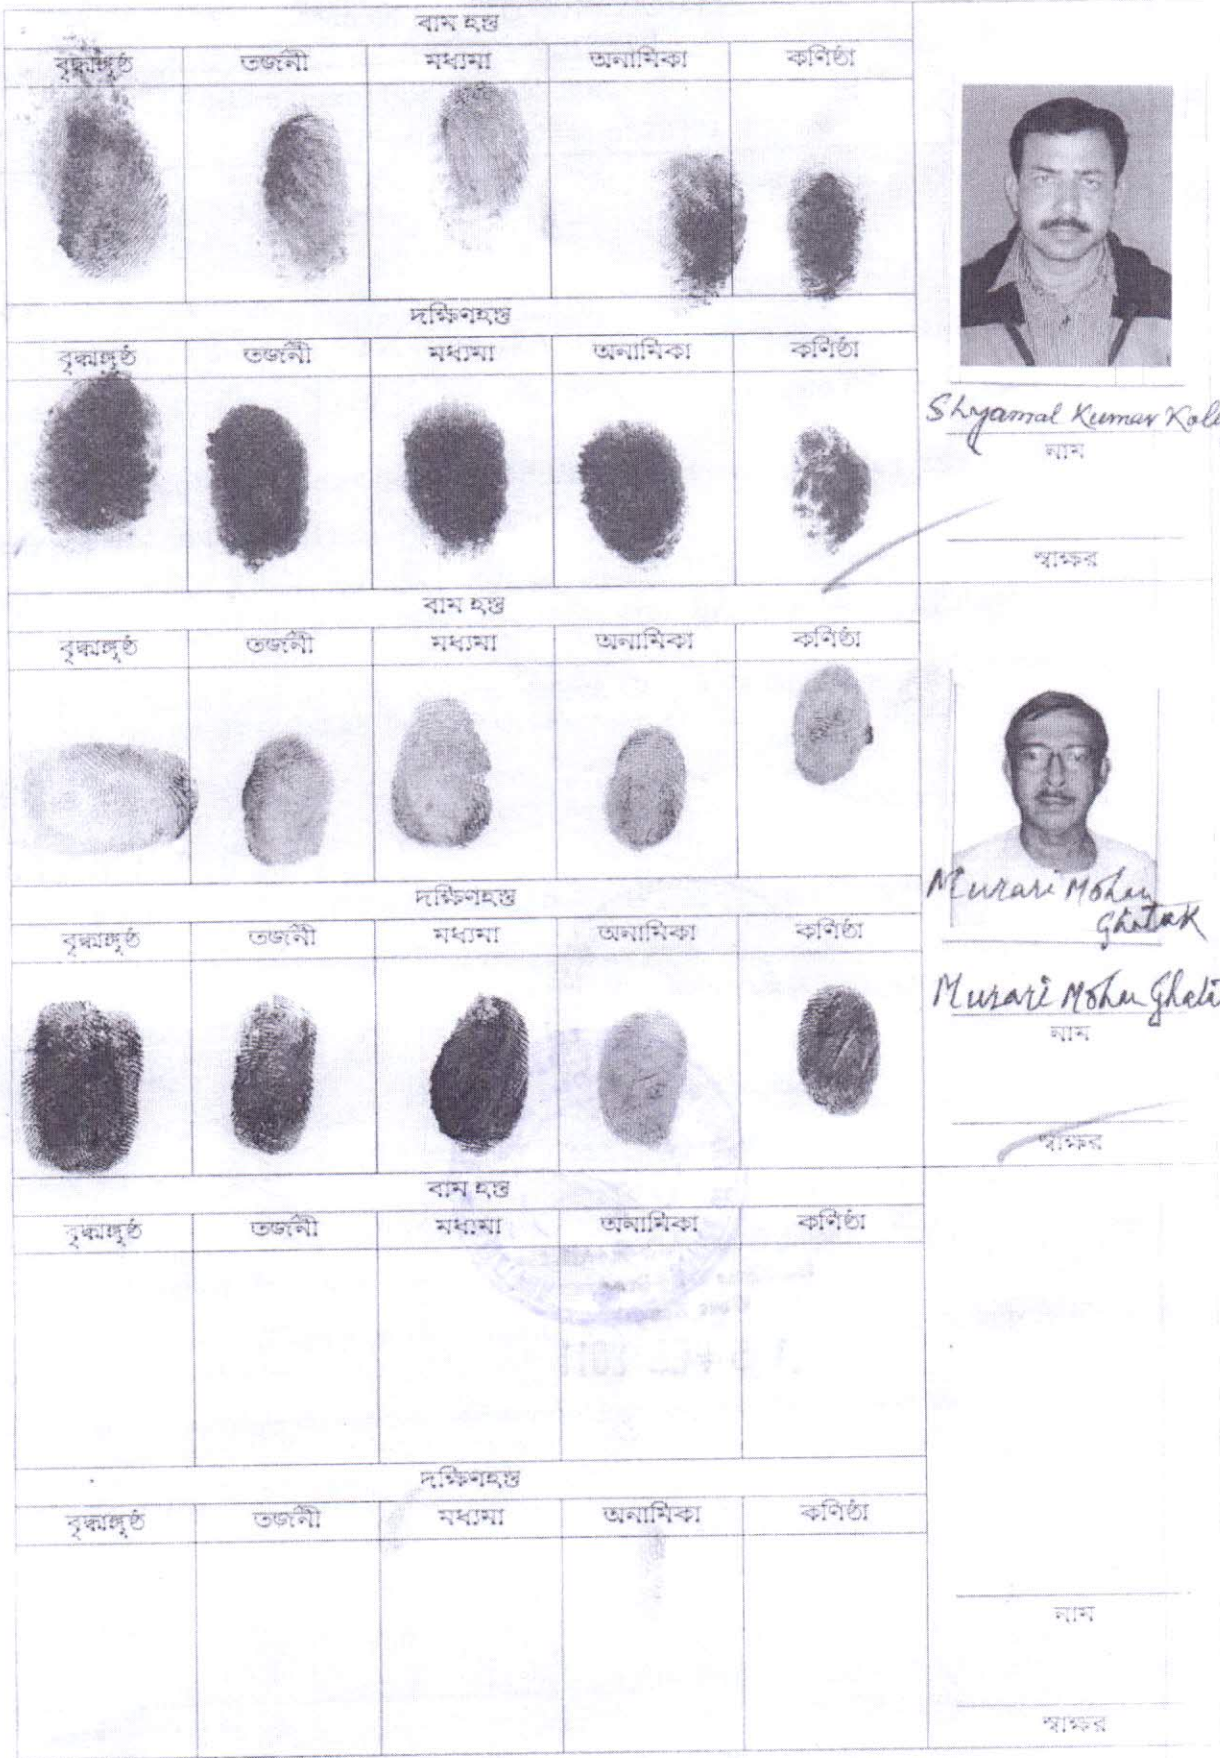 বাম হস্ত
বৃদ্ধাঙ্গুষ্ঠ তর্জনী মধ্যমা অনামিকা কণিষ্ঠা
দক্ষিণহস্ত
বৃদ্ধাঙ্গুষ্ঠ তর্জনী মধ্যমা অনামিকা কণিষ্ঠা
Shyamal Kumar
নাম
স্বাক্ষর
বাম হস্ত
বৃদ্ধাঙ্গুষ্ঠ তর্জনী মধ্যমা অনামিকা কণিষ্ঠা
দক্ষিণহস্ত
বৃদ্ধাঙ্গুষ্ঠ তর্জনী মধ্যমা অনামিকা কণিষ্ঠা
Murari Mohan
Ghatak
Murari Mohan
নাম
স্বাক্ষর
বাম হস্ত
বৃদ্ধাঙ্গুষ্ঠ তর্জনী মধ্যমা অনামিকা কণিষ্ঠা
দক্ষিণহস্ত
বৃদ্ধাঙ্গুষ্ঠ তর্জনী মধ্যমা অনামিকা কণিষ্ঠা
নাম
স্বাক্ষর